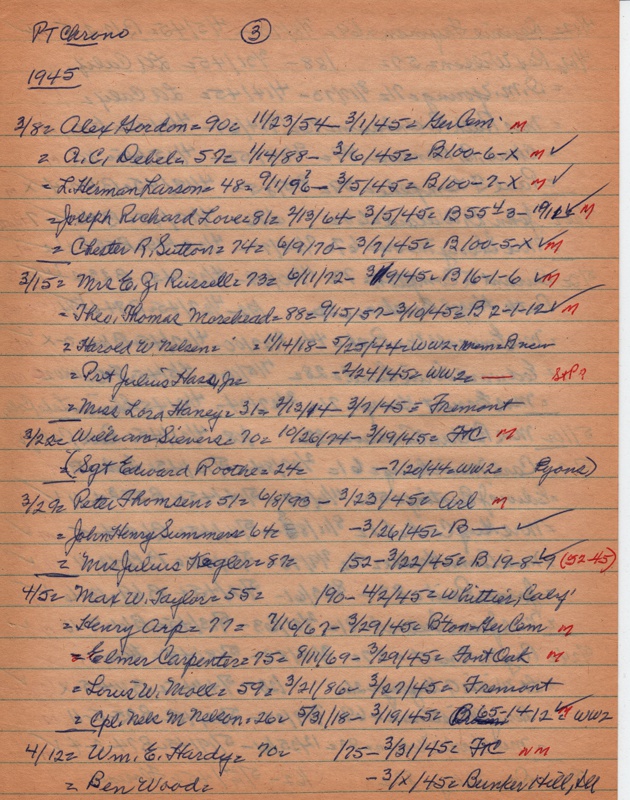 PT Chrono ③
1945
3/8 = Alex Gordon = 90 = 11/23/54 - 3/1/45 = Ger Cem. M
= A.C. Debel = 57 = 1/14/88 - 3/6/45 = B100-6-X M ✓
= L. Herman Larson = 48 = 9/1/96? - 3/5/45 = B100-7-X M ✓
= Joseph Richard Love = 81 = 2/13/64 - 3/5/45 = B 55 - 3 - ✓ M
= Chester R. Sutton = 74 = 6/9/70 - 3/7/45 = B100-5-X ✓ M
3/15 = Mrs E. J. Russell = 73 = 6/11/72 - 3/9/45 = B 16-1-6 ✓ M
= Theo. Thomas Morehead = 88 = 9/15/57 - 3/10/45 = B 2-1-12 ✓ M
= Harold W Nelsen = = 11/14/18 - 5/25/44 = WW2 = mem = B new
= Pvt Julius Hass, Jr = - 2/24/45 = WW2 = — S&P?
= Miss Lora Haney = 31 = 2/13/14 - 3/7/45 = Fremont
3/22 = William Sievers = 70 = 10/26/74 - 3/19/45 = FtC M
= (Sgt Edward Roothe = 24 = - 7/20/44 = WW2 = Lyons)
3/29 = Peter Thomsen = 51 = 6/8/93 - 3/23/45 = Arl M
= John Henry Summers = 64 = - 3/26/45 = B — ✓
= Mrs Julius Kegler = 87 = /52 - 3/22/45 = B 19-8-9 ✓ (52-45)
4/5 = Max W. Taylor = 55 = /90 - 4/2/45 = Whittier, Caly
= Henry Arp = 77 = 7/16/67 - 3/29/45 = Bton = Ger Cem M
= Elmer Carpenter = 75 = 8/11/69 - 3/29/45 = Font Oak M
= Louis W. Moll = 59 = 3/21/86 - 3/27/45 = Fremont
= Cpl. Nels M Nelson = 26 = 5/31/18 - 3/19/45 = B 65-14 12 ✓ M WW2
4/12 = Wm. E. Hardy = 70 = /75 - 3/31/45 = FtC NM
= Ben Wood = - 3/X/45 = Bunker Hill, Ill